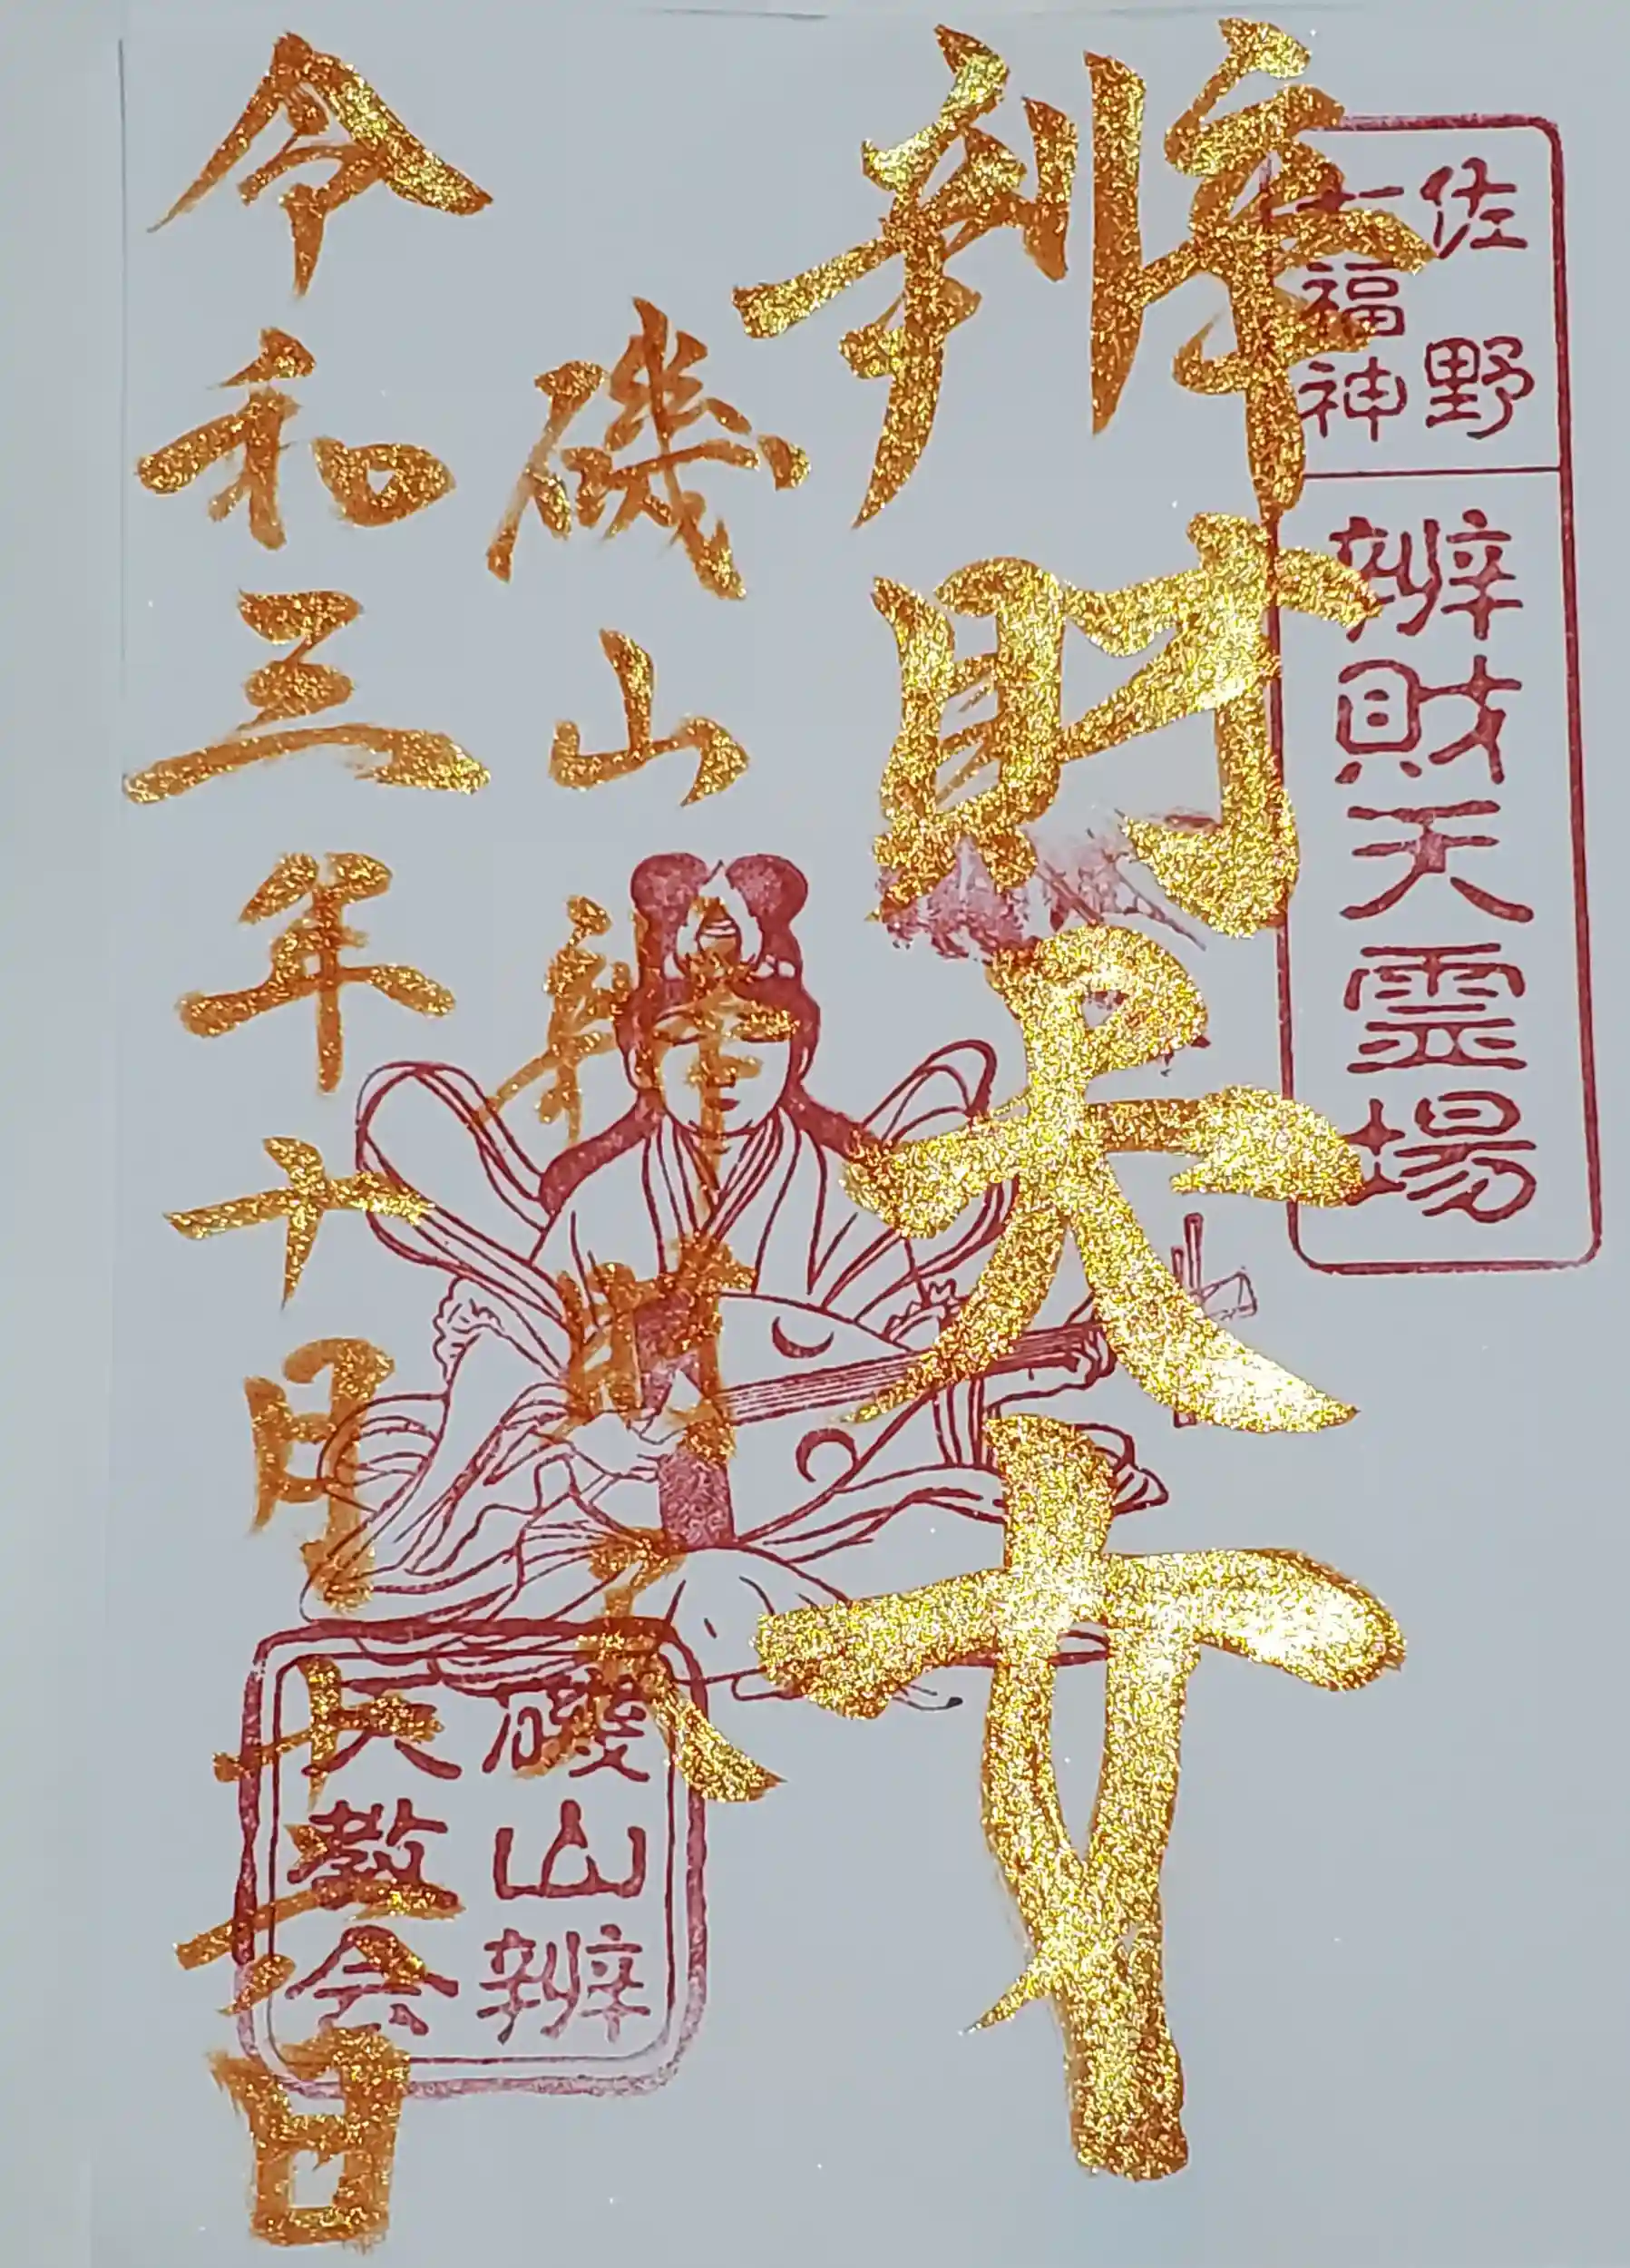 佐野
七福神
辨財天霊場
辨財天女
磯山辨財天
令和三年十月十七日
磯山辨
天教会